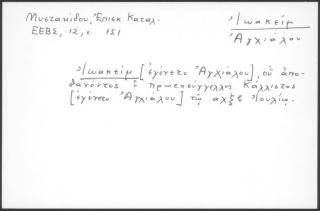 Μυστακίδου, Ἐπισκ. Καταλ.
ΕΕΒΣ, 12, σ. 151
Ἰωακείμ
Ἀγχιάλου
Ἰωακείμ [ἐγένετο Ἀγχιάλου], οὗ ἀπο-
θανόντος ὁ πρωτοσύγγελλος Κάλλιστος
[ἐγένετο Ἀγχιάλου] τῷ αχξε Ἰουλίῳ.